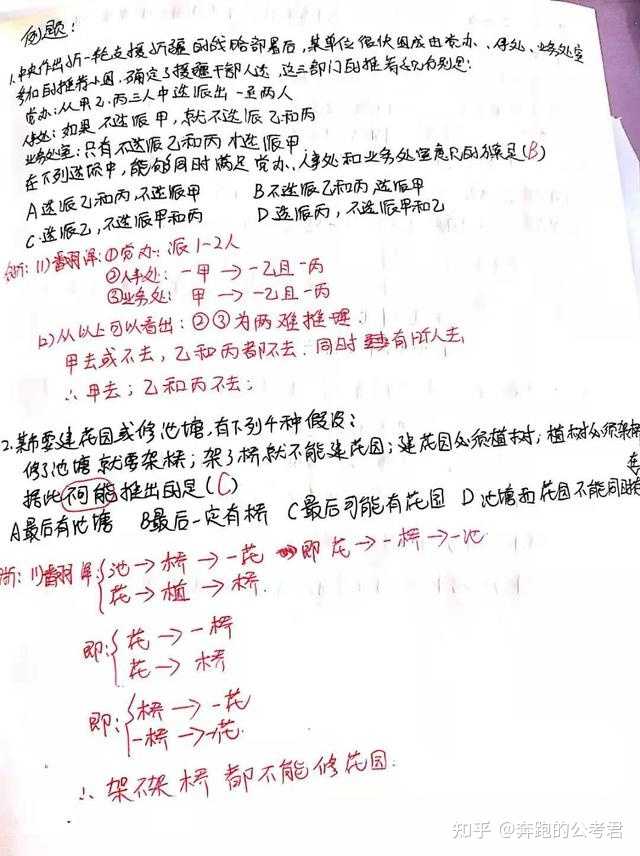 例题:
1.中央作出新一轮支援新疆的战略部署后,某单位很快组成由党办、人事处、业务处室
参加的推荐小组,确定了援疆干部人选,这三部门的推荐意见分别是:
党办:从甲、乙、丙三人中选派出一至两人
人事处:如果不选派甲,就不选派乙和丙
业务处室:只有不选派乙和丙才选派甲
在下列选项中,能够同时满足党办、人事处和业务处室意见的方案是(B)
A选派乙和丙,不选派甲 B不选派乙和丙,选派甲
C.选派乙,不选派甲和丙 D.选派丙,不选派甲和乙
析:(1)翻译:①党办:派1-2人
②人事处:-甲→-乙且-丙
③业务处:甲→-乙且-丙
(2)从以上可以看出:②③为两难推理.
甲去或不去,乙和丙都不去.同时 有 人去,
∴甲去;乙和丙不去;
2.某市要建花园或修池塘,有下列4种假设:
修了池塘就要架桥;架了桥就不能建花园;建花园必须植树;植树必须架桥
据此不可能推出的是(C)
A最后有池塘 B最后一定有桥 C最后可能有花园 D池塘和花园不能同时有
析:(1)翻译:{池→桥→-花 即花→-桥→-池
花→植→桥.
即:{花→-桥
花→桥
即:{桥→-花
-桥→-花.
∴架不架桥都不能修花园.
知乎 @奔跑的公考君